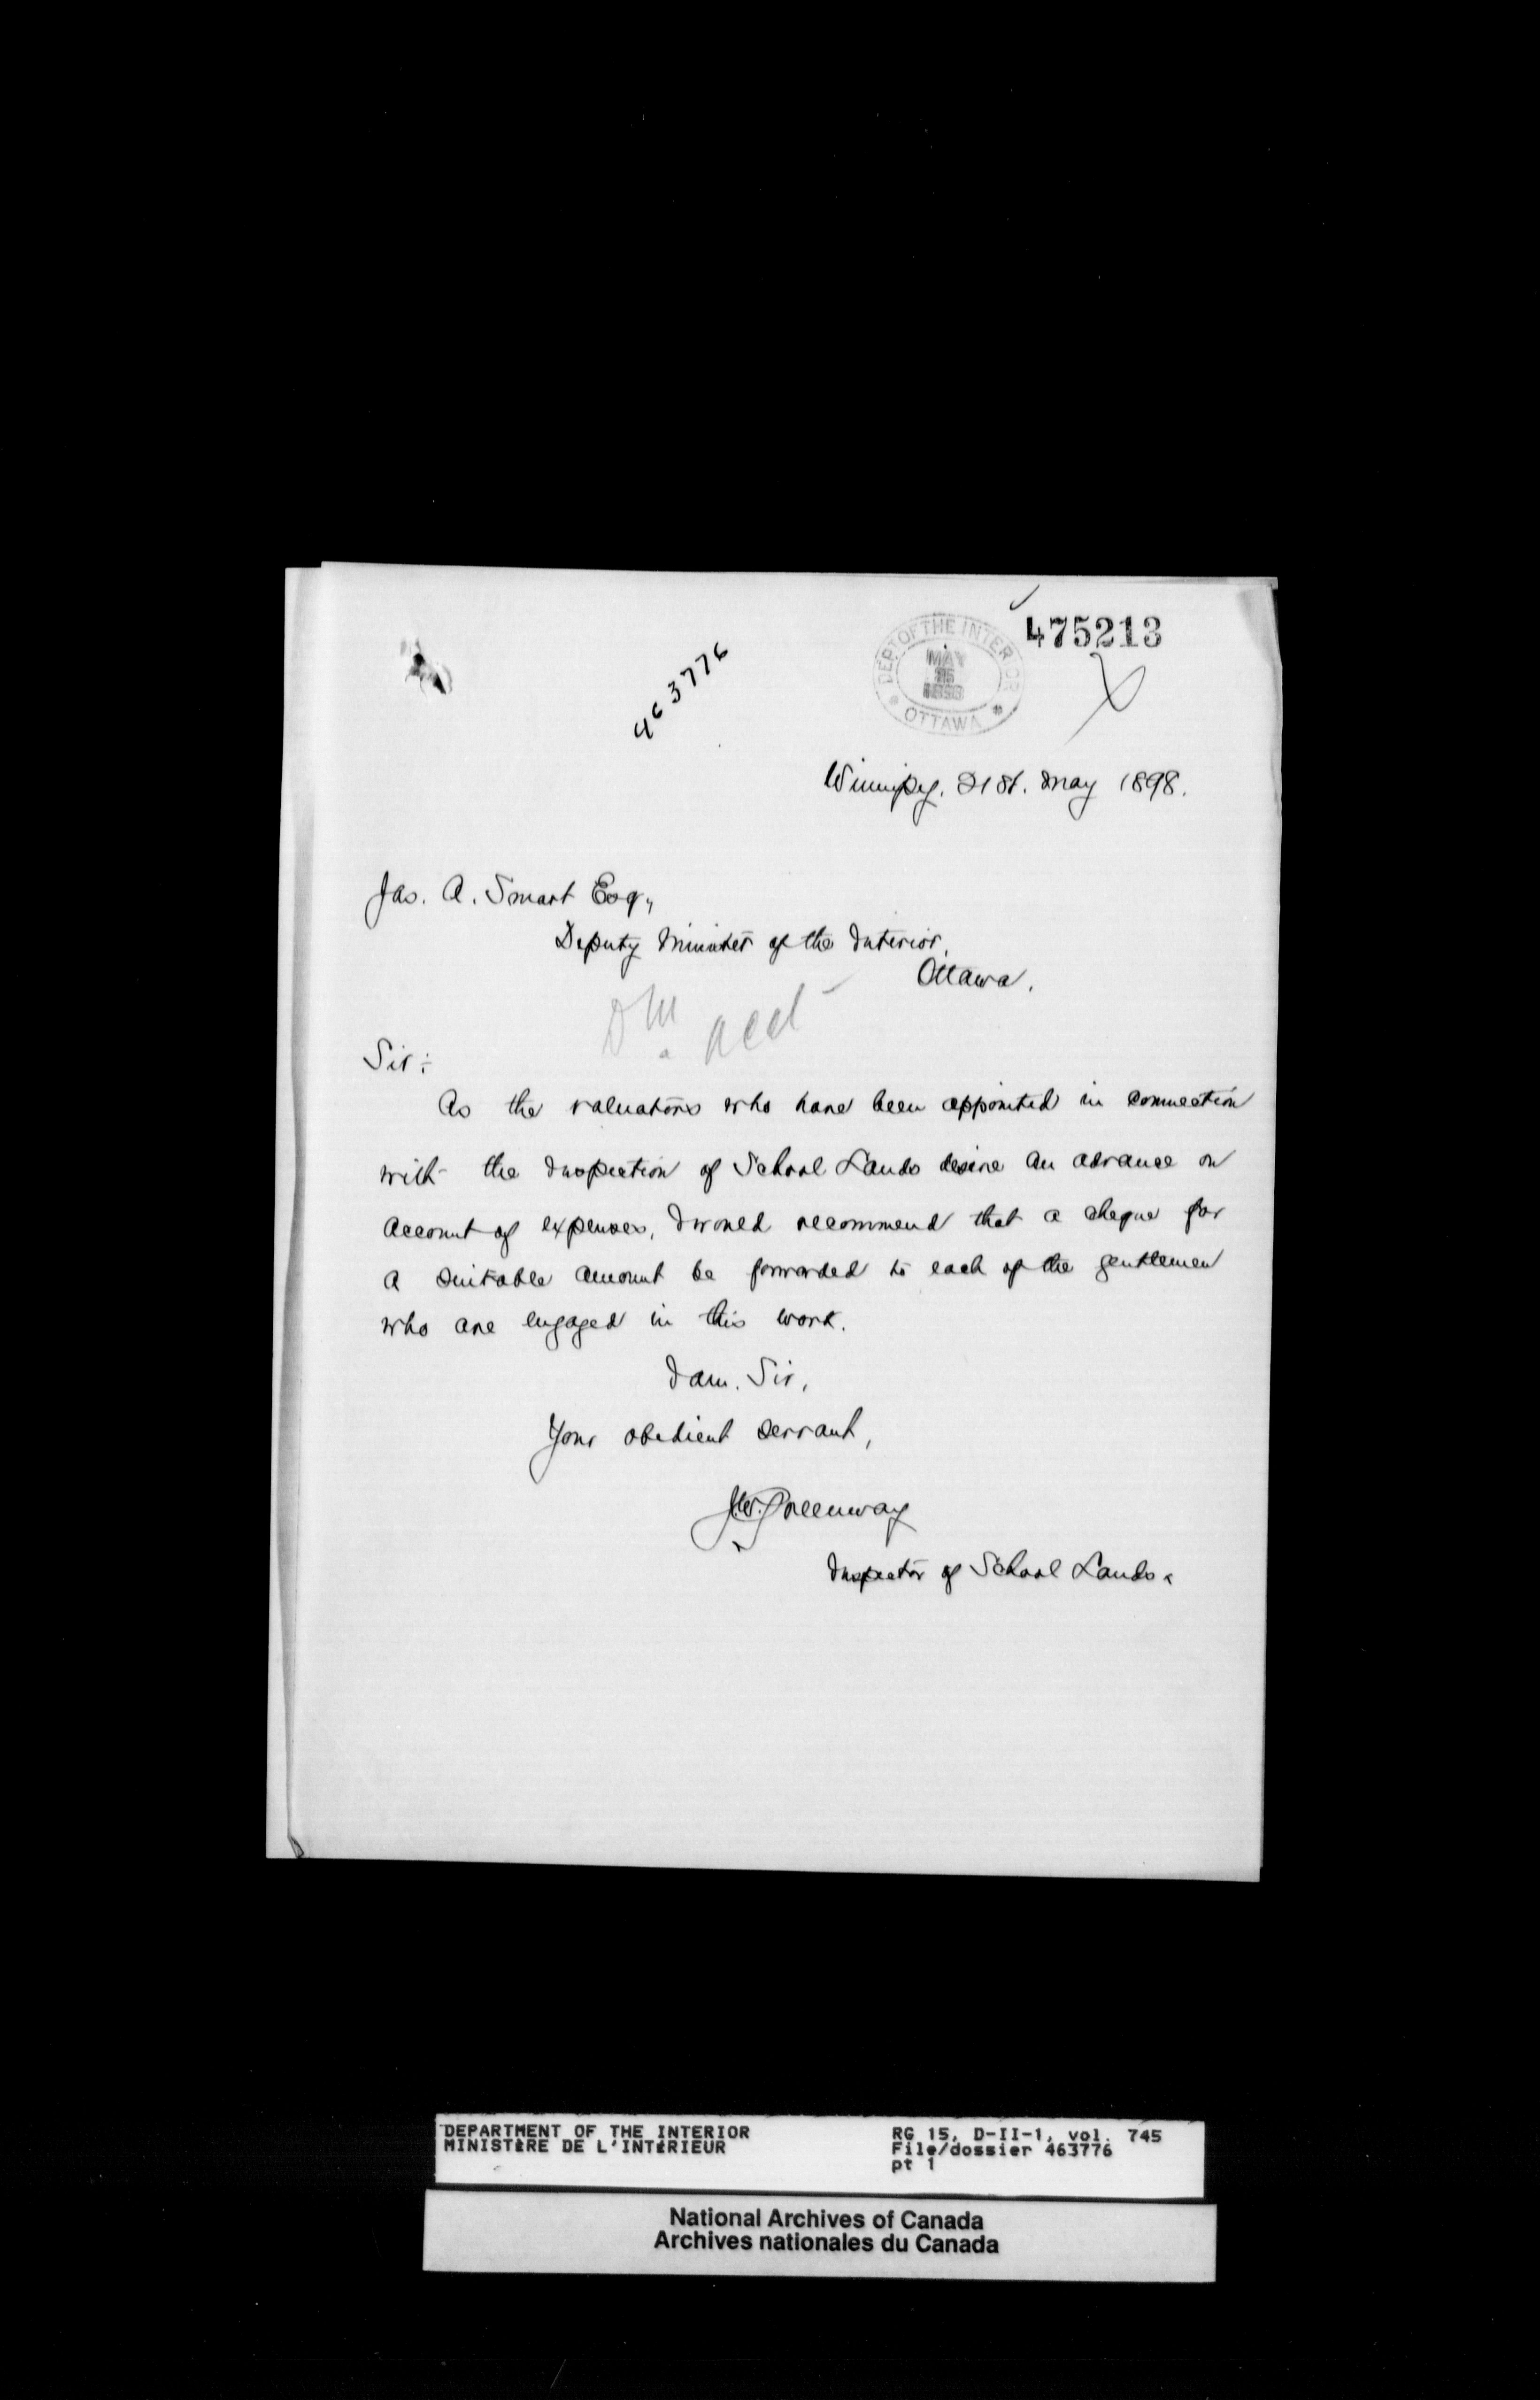 475213
DEPT. OF THE INTERIOR
MAY
1898
OTTAWA
463776
Winnipeg. 21st. May 1898.
Jas. A. Smart Esq,
Deputy Minister of the Interior,
Ottawa.
Sir:
As the valuators who have been appointed in connection
with the Inspection of School Lands desire an advance on
account of expenses, I would recommend that a cheque for
a suitable amount be forwarded to each of the gentlemen
who are engaged in this work.
I am. Sir,
Your obedient servant,
J.W. Greenway
Inspector of School Lands.
DEPARTMENT OF THE INTERIOR
MINISTÈRE DE L'INTÉRIEUR
RG 15, D-II-1, vol. 745
File/dossier 463776
pt 1
National Archives of Canada
Archives nationales du Canada